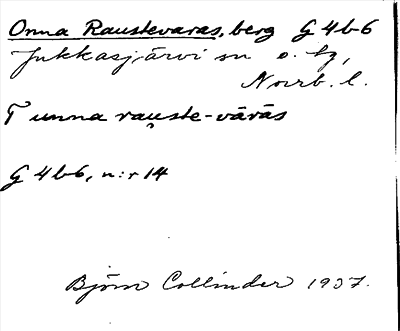 Onna Raustevaras, berg G 4b6
Jukkasjärvi sn o. tg,
Norrb. l.
T unna rauste-vārās
G 4b6, n:r 14
Björn Collinder 1937.